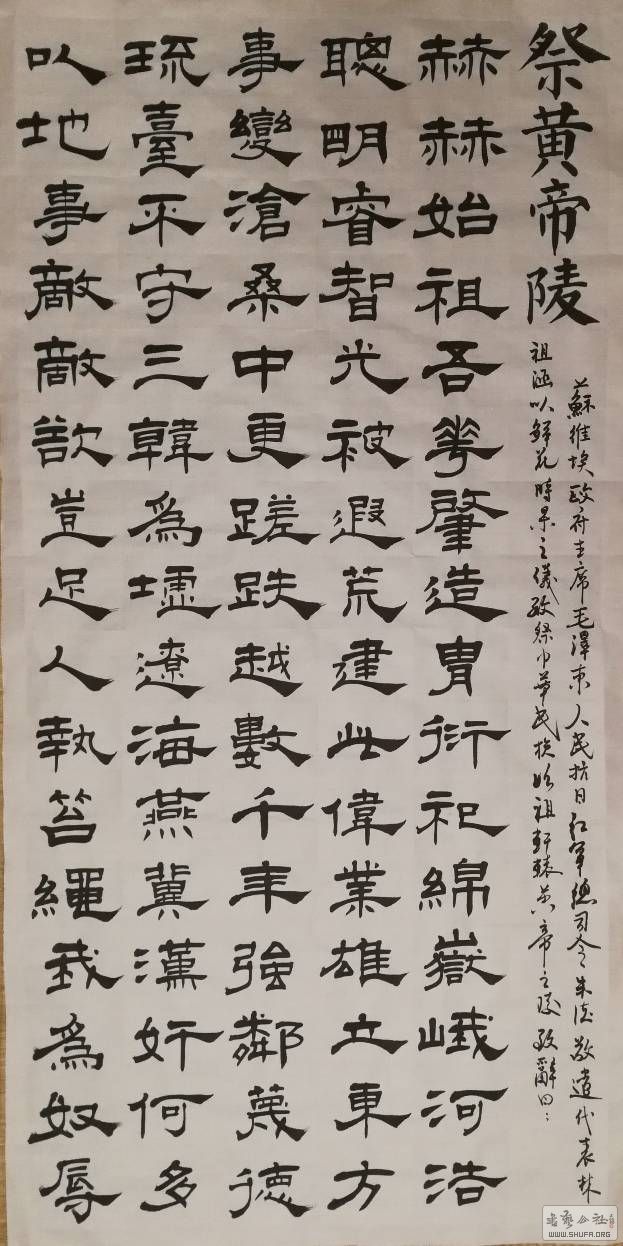 祭黄帝陵
蘇維埃政府主席毛澤東人民抗日紅軍總司令朱德敬遣代表林
祖涵以鮮花時果之儀致祭中華民族始祖軒轅黄帝之陵致辭曰：
赫赫始祖吾華肇造胄衍祀綿嶽峨河浩
聰明睿智光被遐荒建此偉業雄立東方
事變滄桑中更蹉跌越數千年強鄰蔑德
琉臺不守三韓為墟遼海燕冀漢奸何多
以地事敵敵欲豈足人執笞繩我為奴辱
书艺公社
WWW.SHUFA.ORG